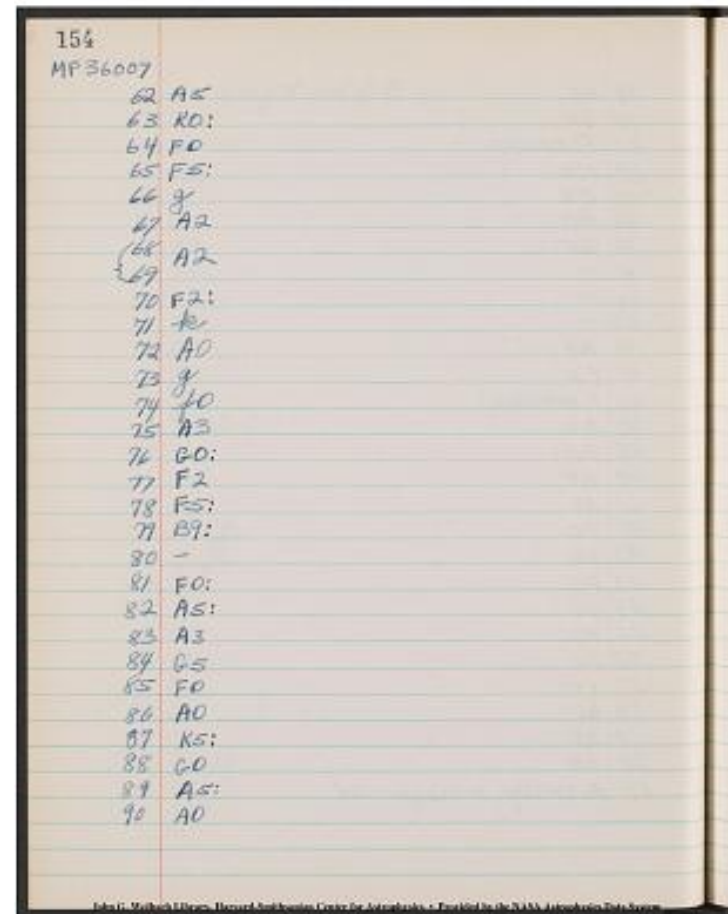 154
MP 36007
62 A5
63 K0:
64 F0
65 F5:
66 g
67 A2
68 A2
69
70 F2:
71 k
72 A0
73 g
74 f0
75 A3
76 G0:
77 F2
78 F5:
79 B9:
80 -
81 F0:
82 A5:
83 A3
84 G5
85 F0
86 A0
87 K5:
88 G0
89 A5:
90 A0
John G. Wolbach Library, Harvard-Smithsonian Center for Astrophysics • Provided by the NASA Astrophysics Data System